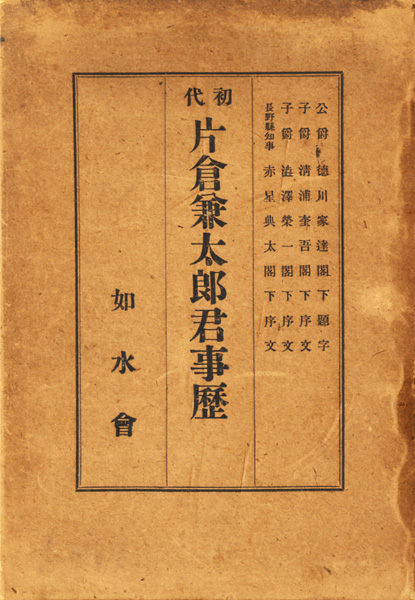 公爵德川家達閣下題字
子爵清浦奎吾閣下序文
子爵澁澤榮一閣下序文
長野縣知事 赤星典太閣下序文
初代
片倉兼太郎君事歷
如水會